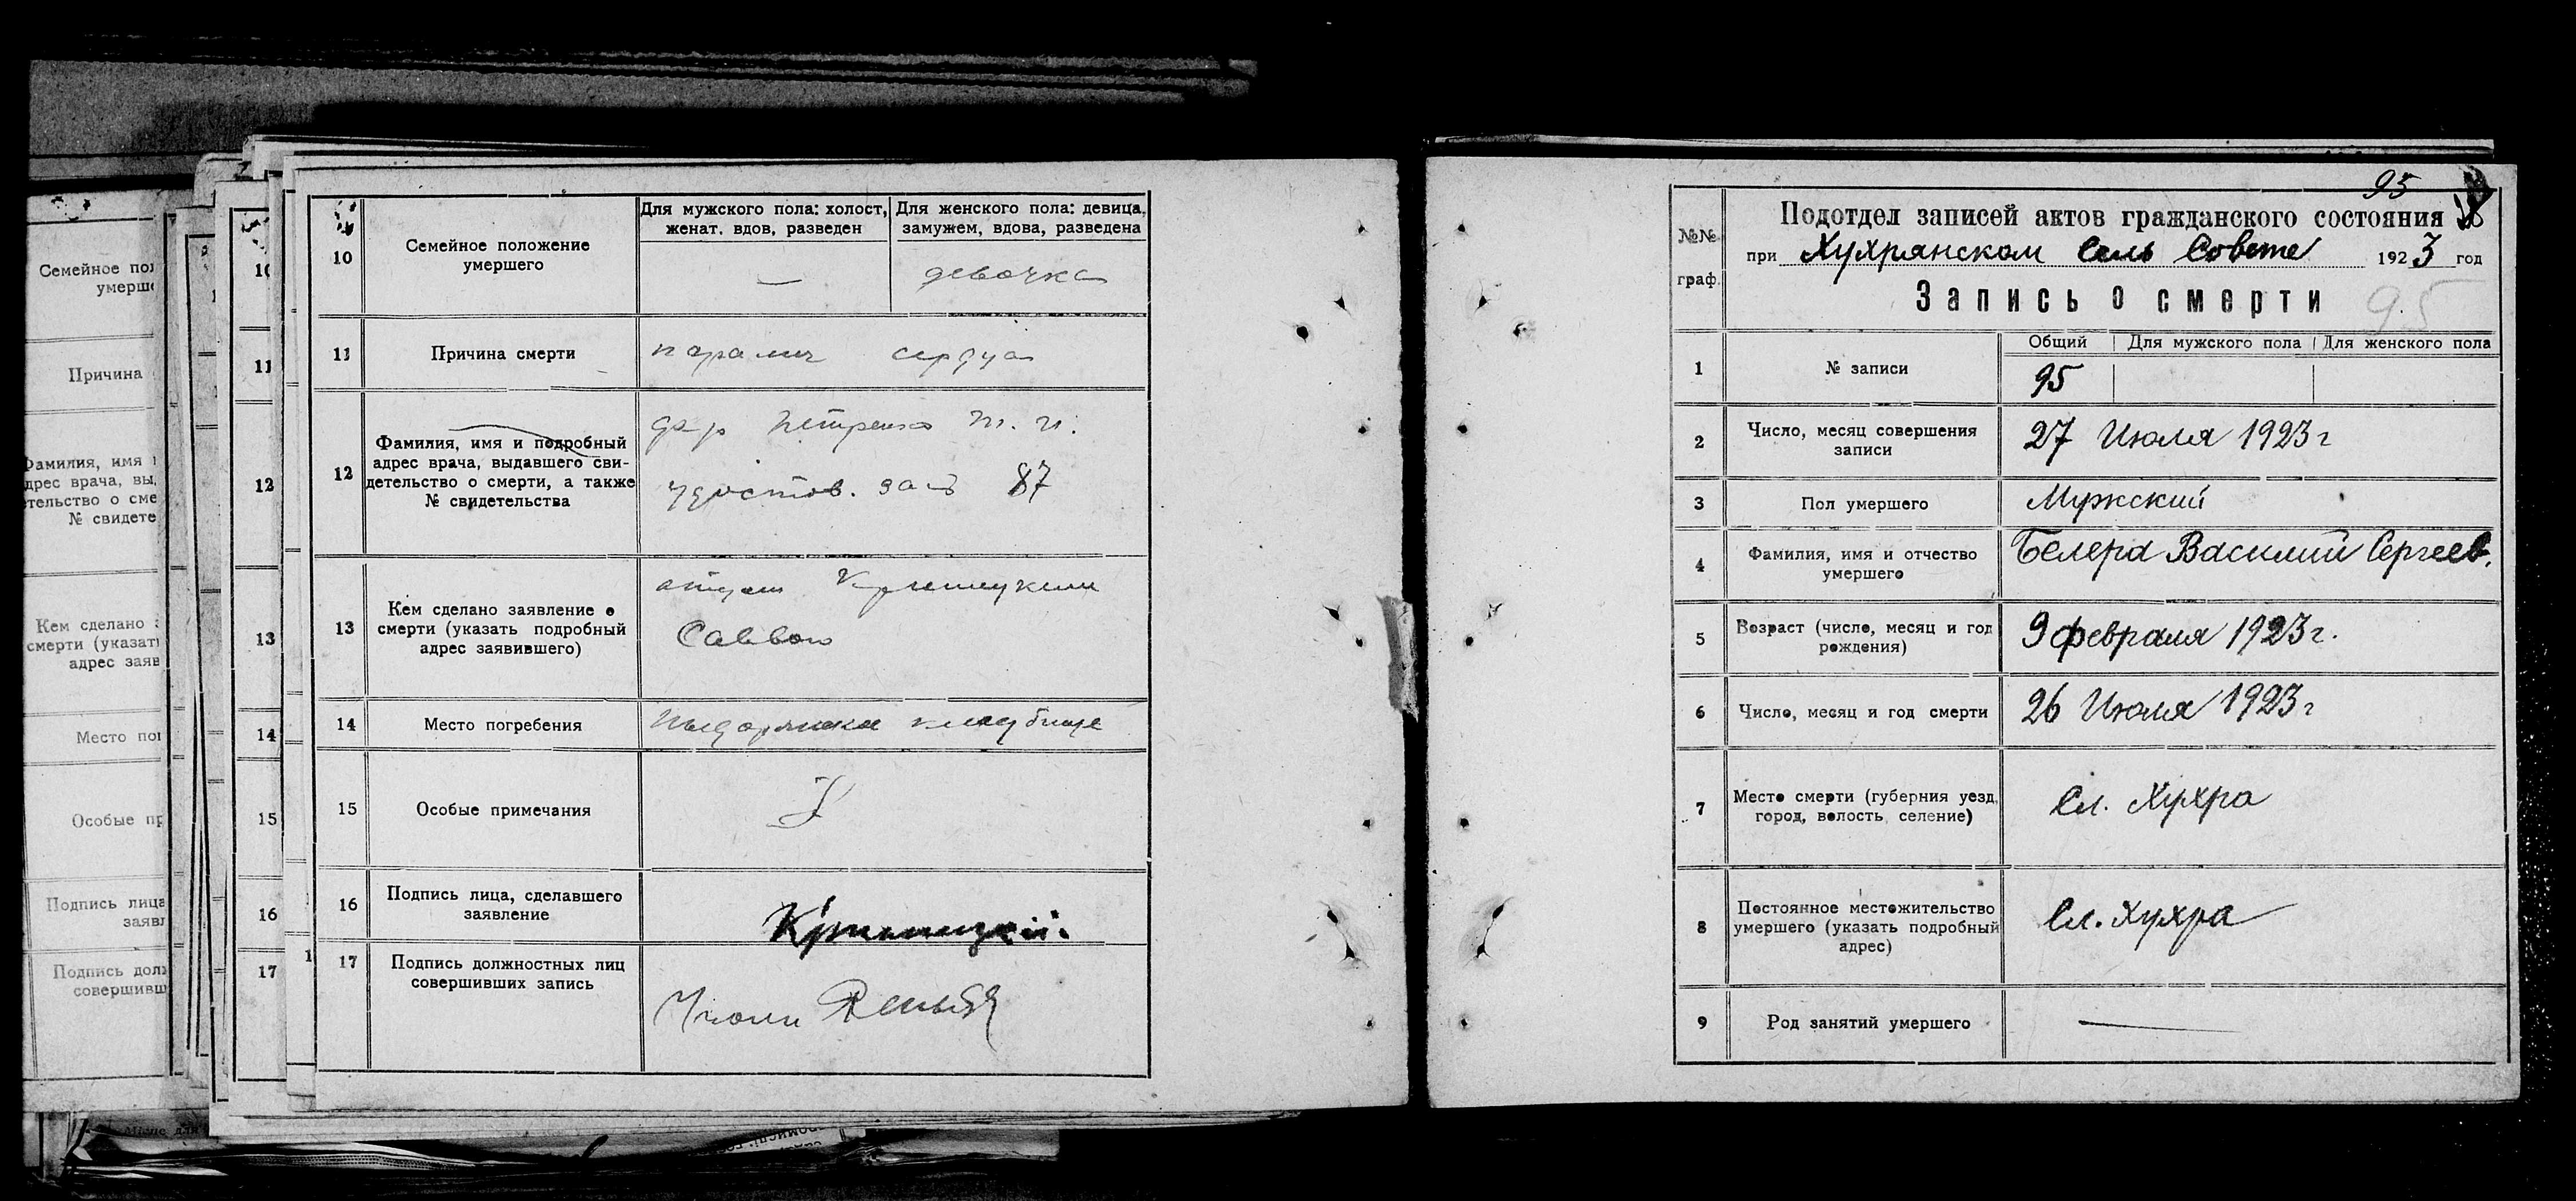 Семейное пол
умерше
Причина
Фамилия, имя и
адрес врача, вы
тельство о сме
№ свидете
Кем сделано з
смерти (указать
адрес заяв
Место пог
Особые пр
Подпись лица
заявл
Подпись долж
совершивш
10
11
12
13
14
15
16
17
10
Семейное положение
умершего
Для мужского пола: холост,
женат. вдов, разведен
Для женского пола: девица,
замужем, вдова, разведена
—
девочка
11
Причина смерти
паралич сердца
12
Фамилия, имя и подробный
адрес врача, выдавшего сви-
детельство о смерти, а также
№ свидетельства
87
13
Кем сделано заявление о
смерти (указать подробный
адрес заявившего)
отцом
14
Место погребения
кладбище
15
Особые примечания
16
Подпись лица, сделавшего
заявление
17
Подпись должностных лиц
совершивших запись
95
№№
граф.
Подотдел записей актов гражданского состояния
при Хухрянском Сель Совете 1923 год
Запись о смерти
95
1
№ записи
Общий
Для мужского пола
Для женского пола
95
2
Число, месяц совершения
записи
27 Июля 1923 г
3
Пол умершего
Мужский
4
Фамилия, имя и отчество
умершего
Белера Василий Сергеев.
5
Возраст (число, месяц и год
рождения)
9 февраля 1923 г.
6
Число, месяц и год смерти
26 Июля 1923 г
7
Место смерти (губерния уезд,
город, волость, селение)
Сл. Хухра
8
Постоянное местожительство
умершего (указать подробный
адрес)
Сл. Хухра
9
Род занятий умершего
—